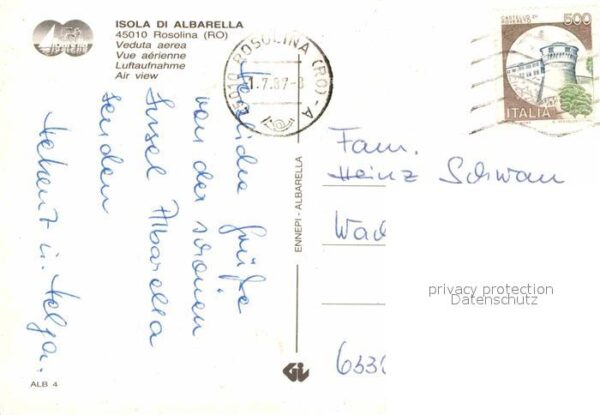 ISOLA DI ALBARELLA
45010 Rosolina (RO)
Veduta aerea
Vue aérienne
Luftaufnahme
Air view
45010 ROSOLINA (RO) - A
1.7.87-8
500
CASTELLO DI
ITALIA
Herzliche Grüße
von der schönen
Insel Albarella
senden
Helmut u. Helga.
ENNEPI - ALBARELLA
Fam.
Heinz Schwan
privacy protection
Datenschutz
ALB 4